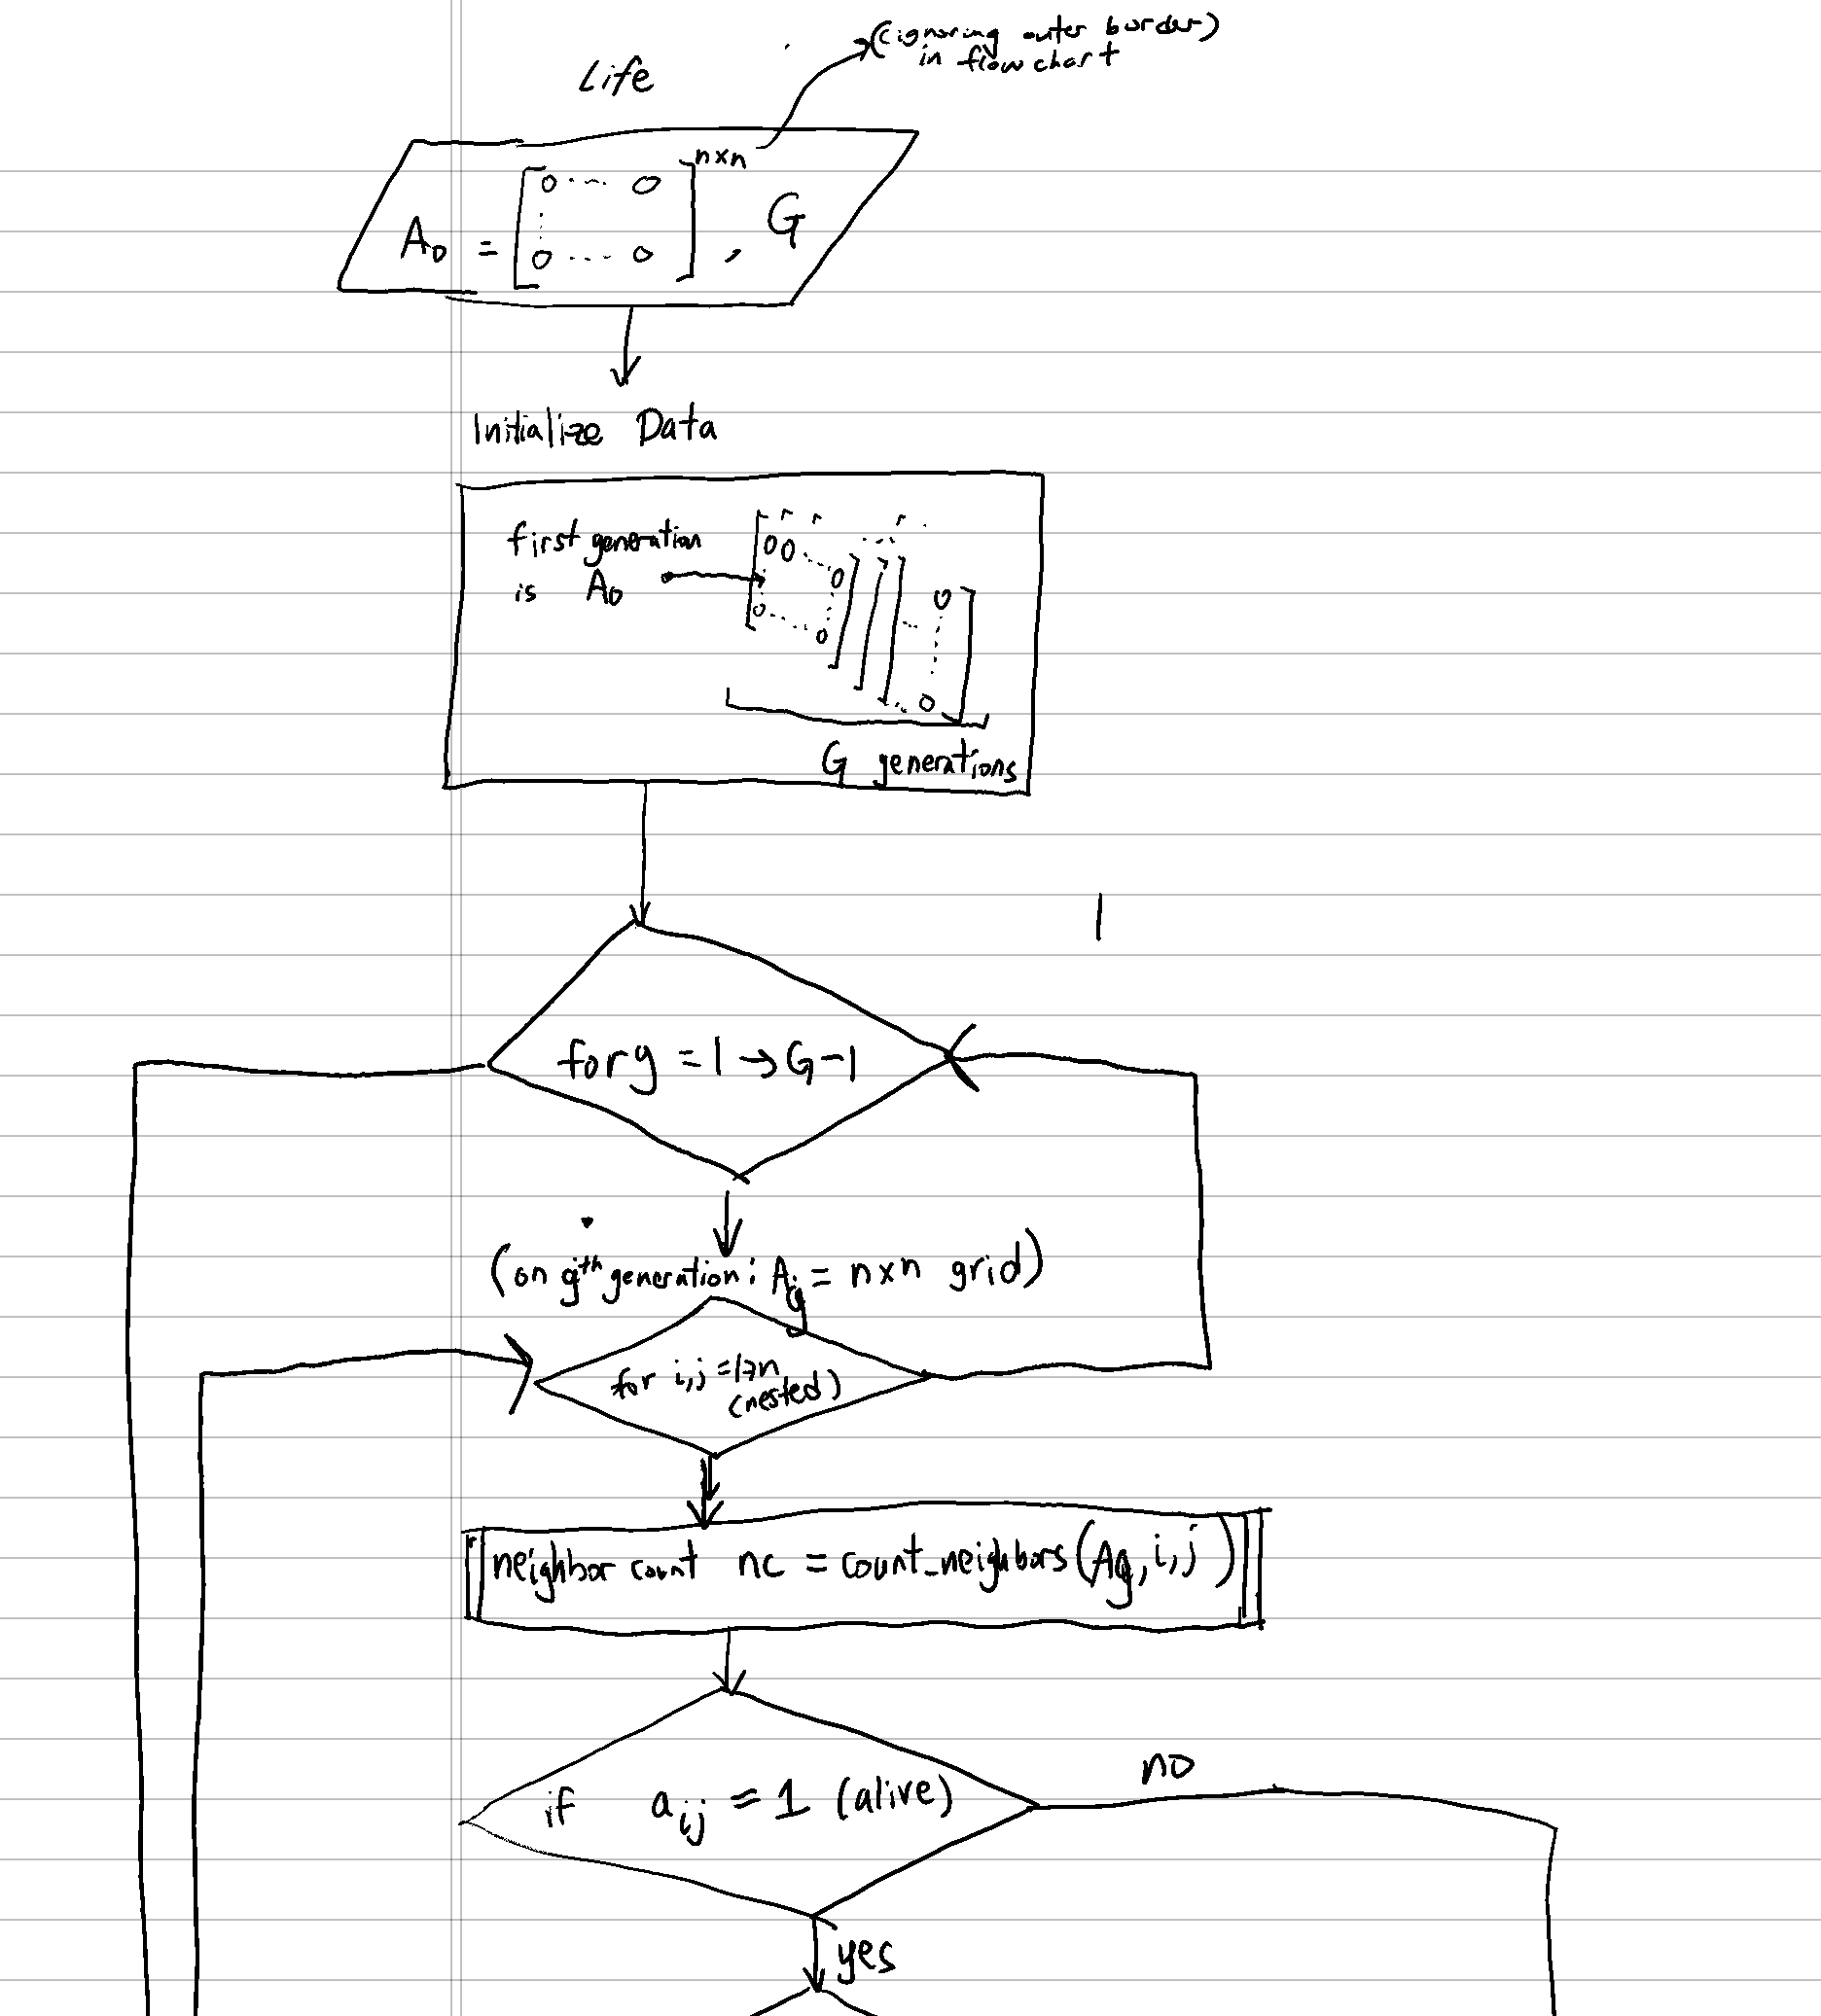 Life
(ignoring outer border)
in flow chart
A₀ = [0 ---- 0
0 ---- 0]ⁿˣⁿ , G
Initialize Data
first generation
is A₀
00 0
0 0
0
0
G generations
for g = 1 → G-1
(on gᵗʰ generation: A_g = n×n grid)
for i,j = 1→n
(nested)
neighbor count nc = count_neighbors(A_g, i, j)
if a_ij = 1 (alive)
no
yes